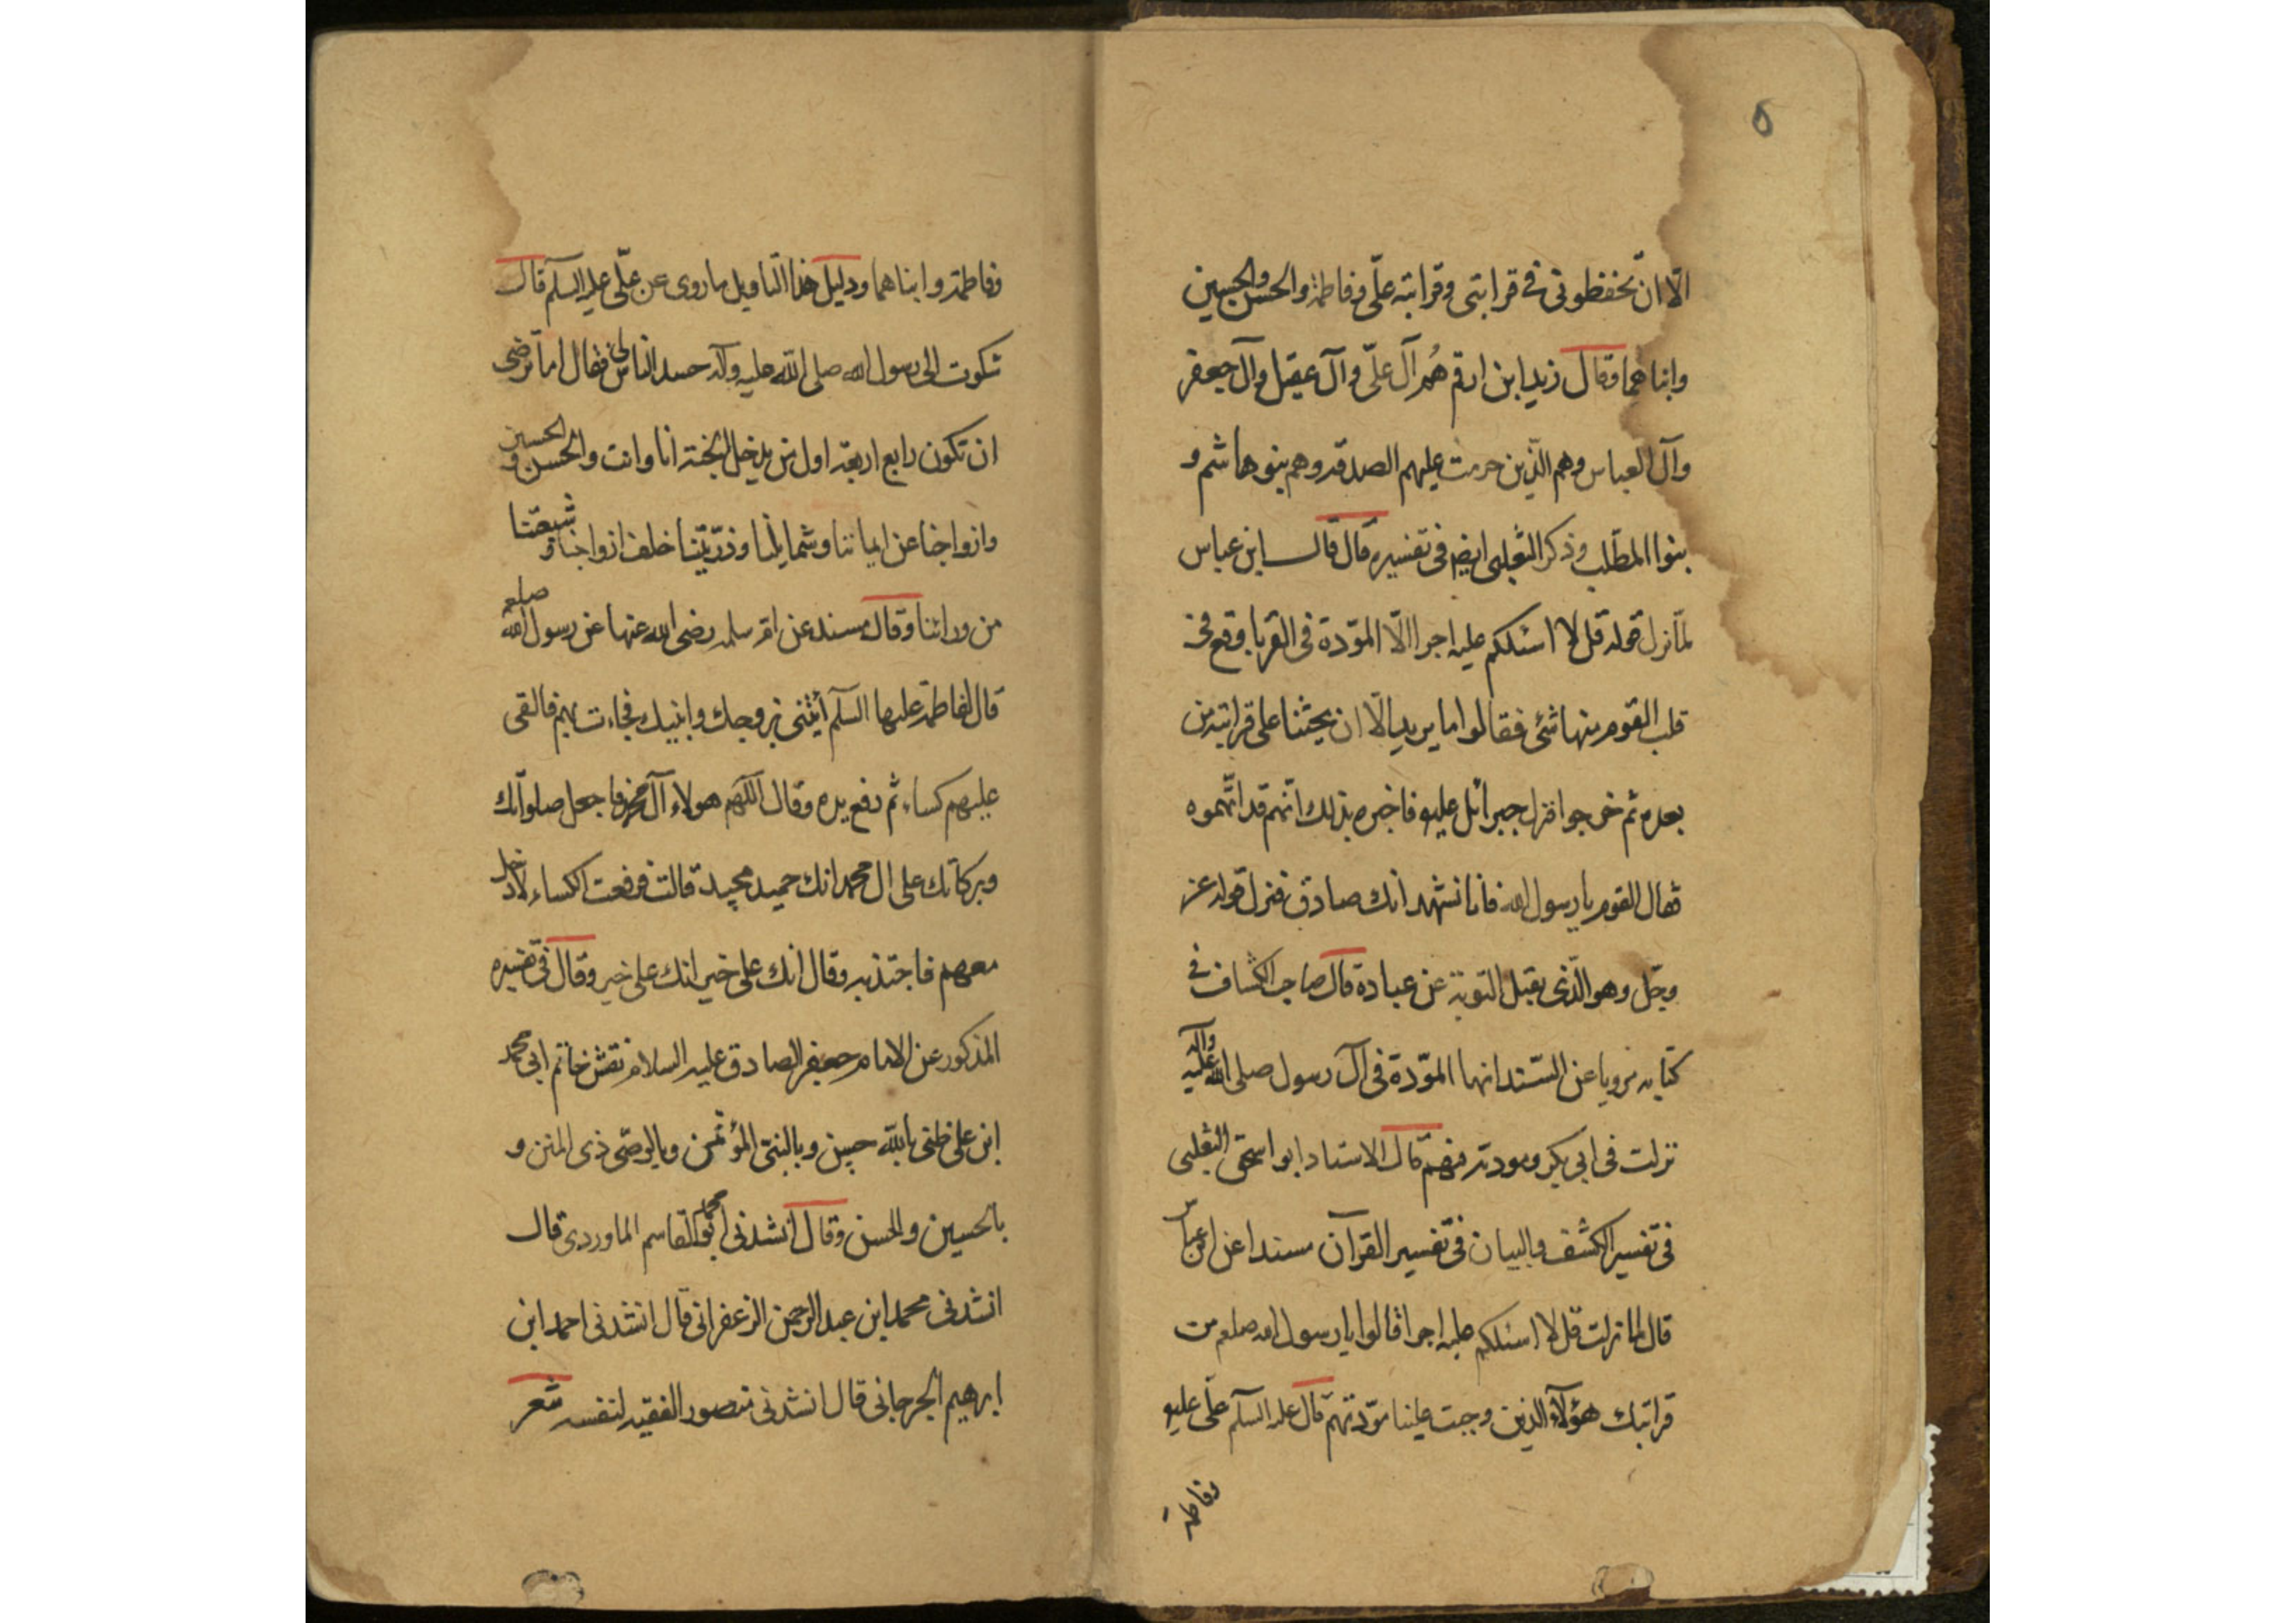 ٥
الّا ان تحفظونى فى قرابتى وقرابته علّى وفاطمة والحسن والحسين
وابناهما وقال زيد ابن ارقم هُم آل علّى وآل عقيل وآل جعفر
وآل العباس وهم الذين حرمت عليهم الصدقه وهم بنو هاشم و
بنوا المطّلب وذكر الثعلبى ايضا فى تفسيره قال قال ابن عباس
لمّا نزل قوله قل لا اسئلكم عليه اجرا الّا المودّة فى القربا وقع فى
قلب القوم منها شئ فقالوا ما يريد الّا ان يحثنا على قرابته من
بعده ثم خرجوا فنزل جبرائل عليه فاخبره بذلك انّهم قد اتّهموه
فقال القوم يا رسول الله فانا نشهد انك صادق فنزل قوله عز
وجّل وهو الّذى يقبل التوبة عن عباده قال صاحب الكشاف فى
كتابه مرويا عن السّند انها المودّة فى آل رسول صلى الله عليه وآله
نزلت فى ابى بكر ومودته فيهم قال الاستاد ابو اسحق الثعلبى
فى تفسير الكشف والبيان فى تفسير القرآن مسندا عن ابن عباس
قال لما نزلت قل لا اسئلكم عليه اجرا قالوا يا رسول الله صلعم من
قرابتك هؤلآء الذين وجبت علينا مودّتهم قال عليه السلم علّى عليه
وفاطمة
وفاطمة وابناهما ودليل هذا التاويل ما روى عن علّى عليه السلم قال
شكوت الى رسول الله صلى الله عليه وآله حسد الناس لى فقال اما ترضى
ان تكون رابع اربعة اول من يدخل الجنة انا وانت والحسن والحسين
وازواجنا عن ايماننا وشمايلنا وذرّيتنا خلف ازواجنا وشيعتنا
من ورائنا وقال مسند عن ام سلمه رضى الله عنها عن رسول الله صلعم
قال لفاطمة عليها السلم أيتنى بزوجك وابنيك فجاءت بهم فالقى
عليهم كساء ثم رفع يده وقال اللهم هولاء آل محمد فاجعل صلواتك
وبركاتك على ال محمد انك حميد مجيد قالت فرفعت الكساء لادخل
معهم فاجتذبه وقال انك على خير انك على خير وقال فى تفسيره
المذكور عن الامام جعفر الصادق عليه السلام نقش خاتم ابى محمد
ابن على ظنى بالله حسن وبالنبى المؤتمن وبالوصّى ذى المنن و
بالحسين والحسن وقال انشدنى محمد ابو القاسم الماوردى قال
انشدنى محمد ابن عبد الرحمن الزعفرانى قال انشدنى احمد ابن
ابرهيم الجرجانى قال انشدنى منصور الفقيه لنفسه شعر